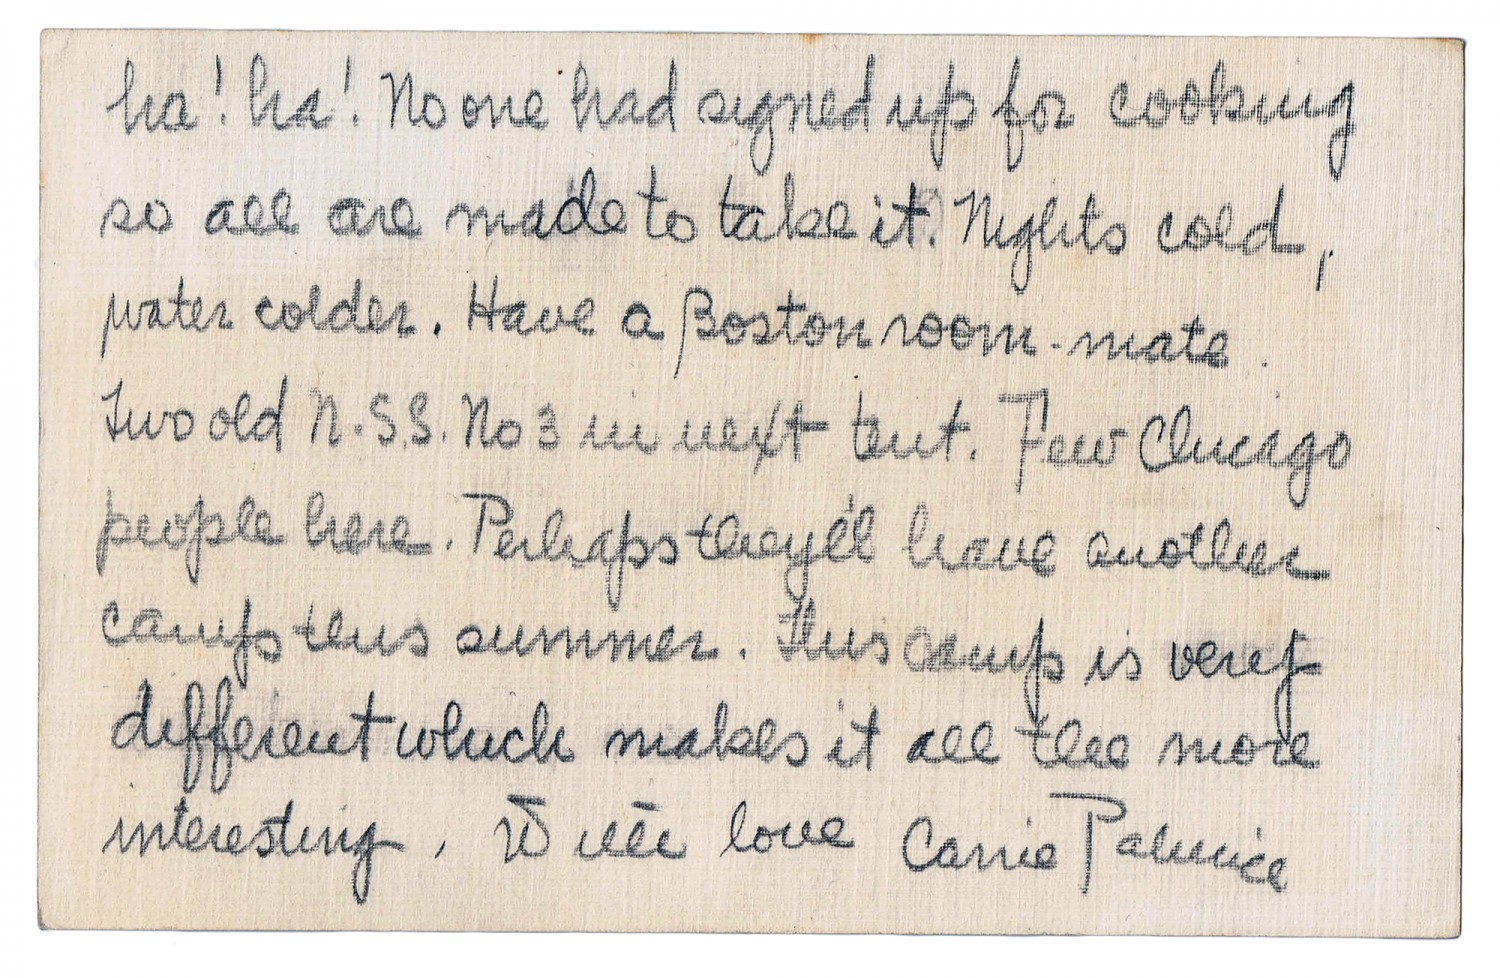 ha! ha! No one had signed up for cooking
so all are made to take it. Nights cold,
water colder. Have a Boston room-mate.
Two old N.S.S. No 3 in next tent. Few Chicago
people here. Perhaps they'll have another
camp this summer. This camp is very
different which makes it all the more
interesting. With love Carrie